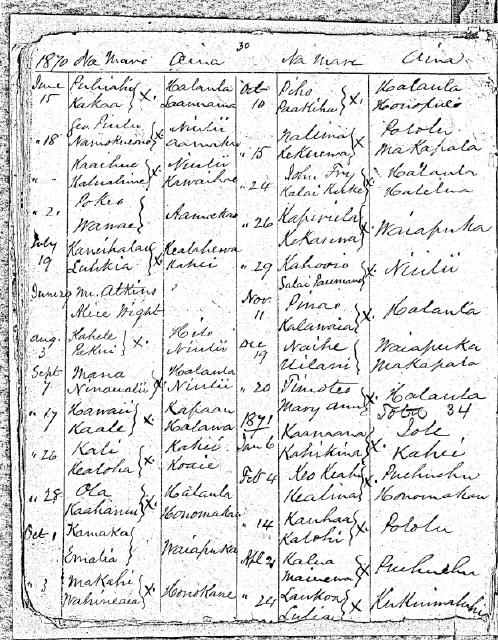 30
1870 Na Mare Aina
June 15 Puhiahi Halaula
Kakaa Laamaina
Geo Piulu Niulii
" 18 Namokueono Aamakao
Kaaehue Niulii
" - Kaluahine Kawaihae
Pokeo
" 2. Wanae Aamakao
July Kaneihalau Kealahewa
19 Luhkia Kahei
June 29 Wm. Atkins "
Alice Wight
Aug. Kahele Hilo
3 Pekini Niulii
Sept Mana Halaula
7 Ninaualii Niulii
" 17 Hawaii Kapaau
Kaale Halawa
" 26 Kali Kahei
Kealoha Koaie
" 28 Ola Halaula
Kaahanui Honomakau
Oct 1 Kamaka
Emalia Waiapuka
" 3 Makahi
Wahineaea Honokane
Na Mare Aina
Oct Piho Halaula
10 Paakiha Honopueo
Nalima Pololu
" 15 Kekuewa Makapala
John Fry Halaula
" 24 Kalai Kuke Halelua
" 26 Kapiwula
Kekasiwa Waiapuka
" 29 Kahooio Niulii
Salai Paumano
Nov. Pinao
11 Kalawaia Halaula
Dec Naihe Waiapuka
19 Uilani Makapala
" 20 Timoteo Halaula
Mary Ann Total 34
1871 Kaamaana Iole
Jan 6 Kahikina Kahei
Feb 4 Keo Keahi Puehuehu
Kealina Honomakau
" 14 Kauhaa
Karohi Pololu
Apl 2 Kalua
Maiewa Puehuehu
" 24 Laukoa
Lulia